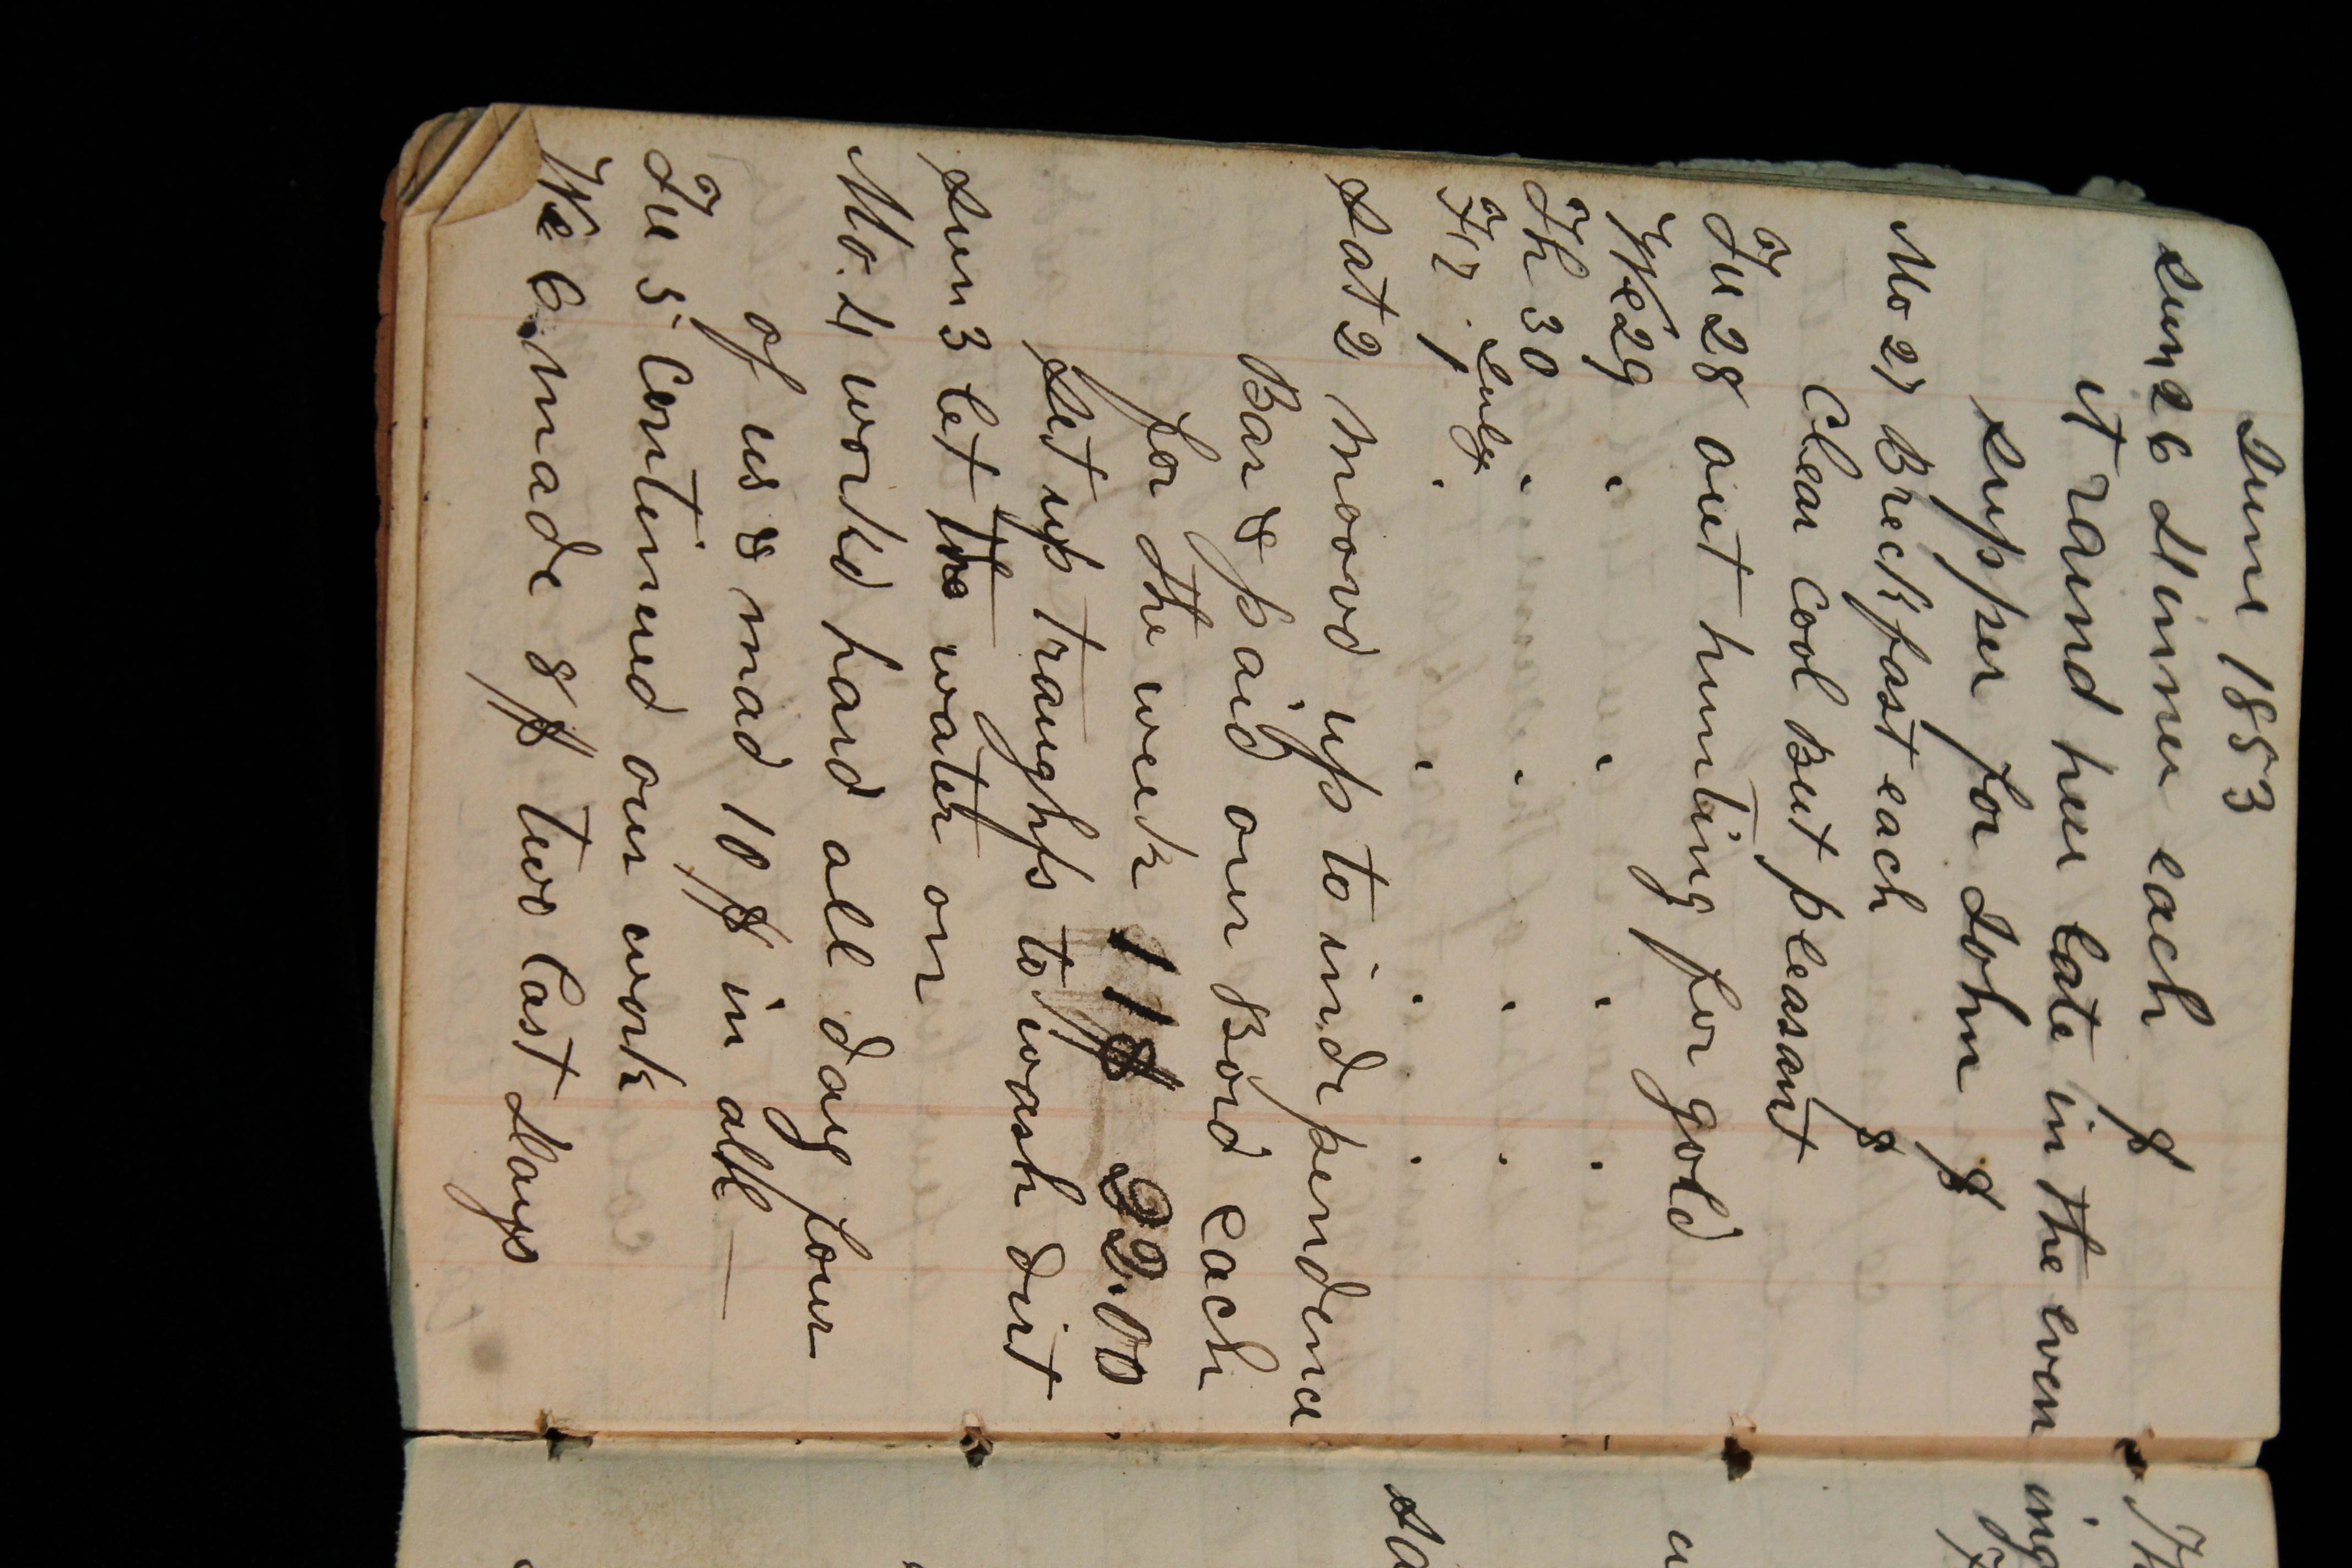 June 1853
Sun 26 Dinner each $
it raind here late in the even ing
supper for John $
Mo 27 Breckfast each $
Clear Cool But pleasant
Tu 28 out hunting for gold
We 29 . . . .
Th 30 . . . .
July
Fr 1 . . . .
Sat 2 moovd up to independence
Bar & paid our Bord each
for the week 11$ 22.00
set up traughfs to wash dirt
Sun 3 let the water on
Mo. 4 workd hard all day four
of us & mad 10 $ in all —
Tu 5 Continued our work
We 6. made 8 $ two last Days
Th
sa